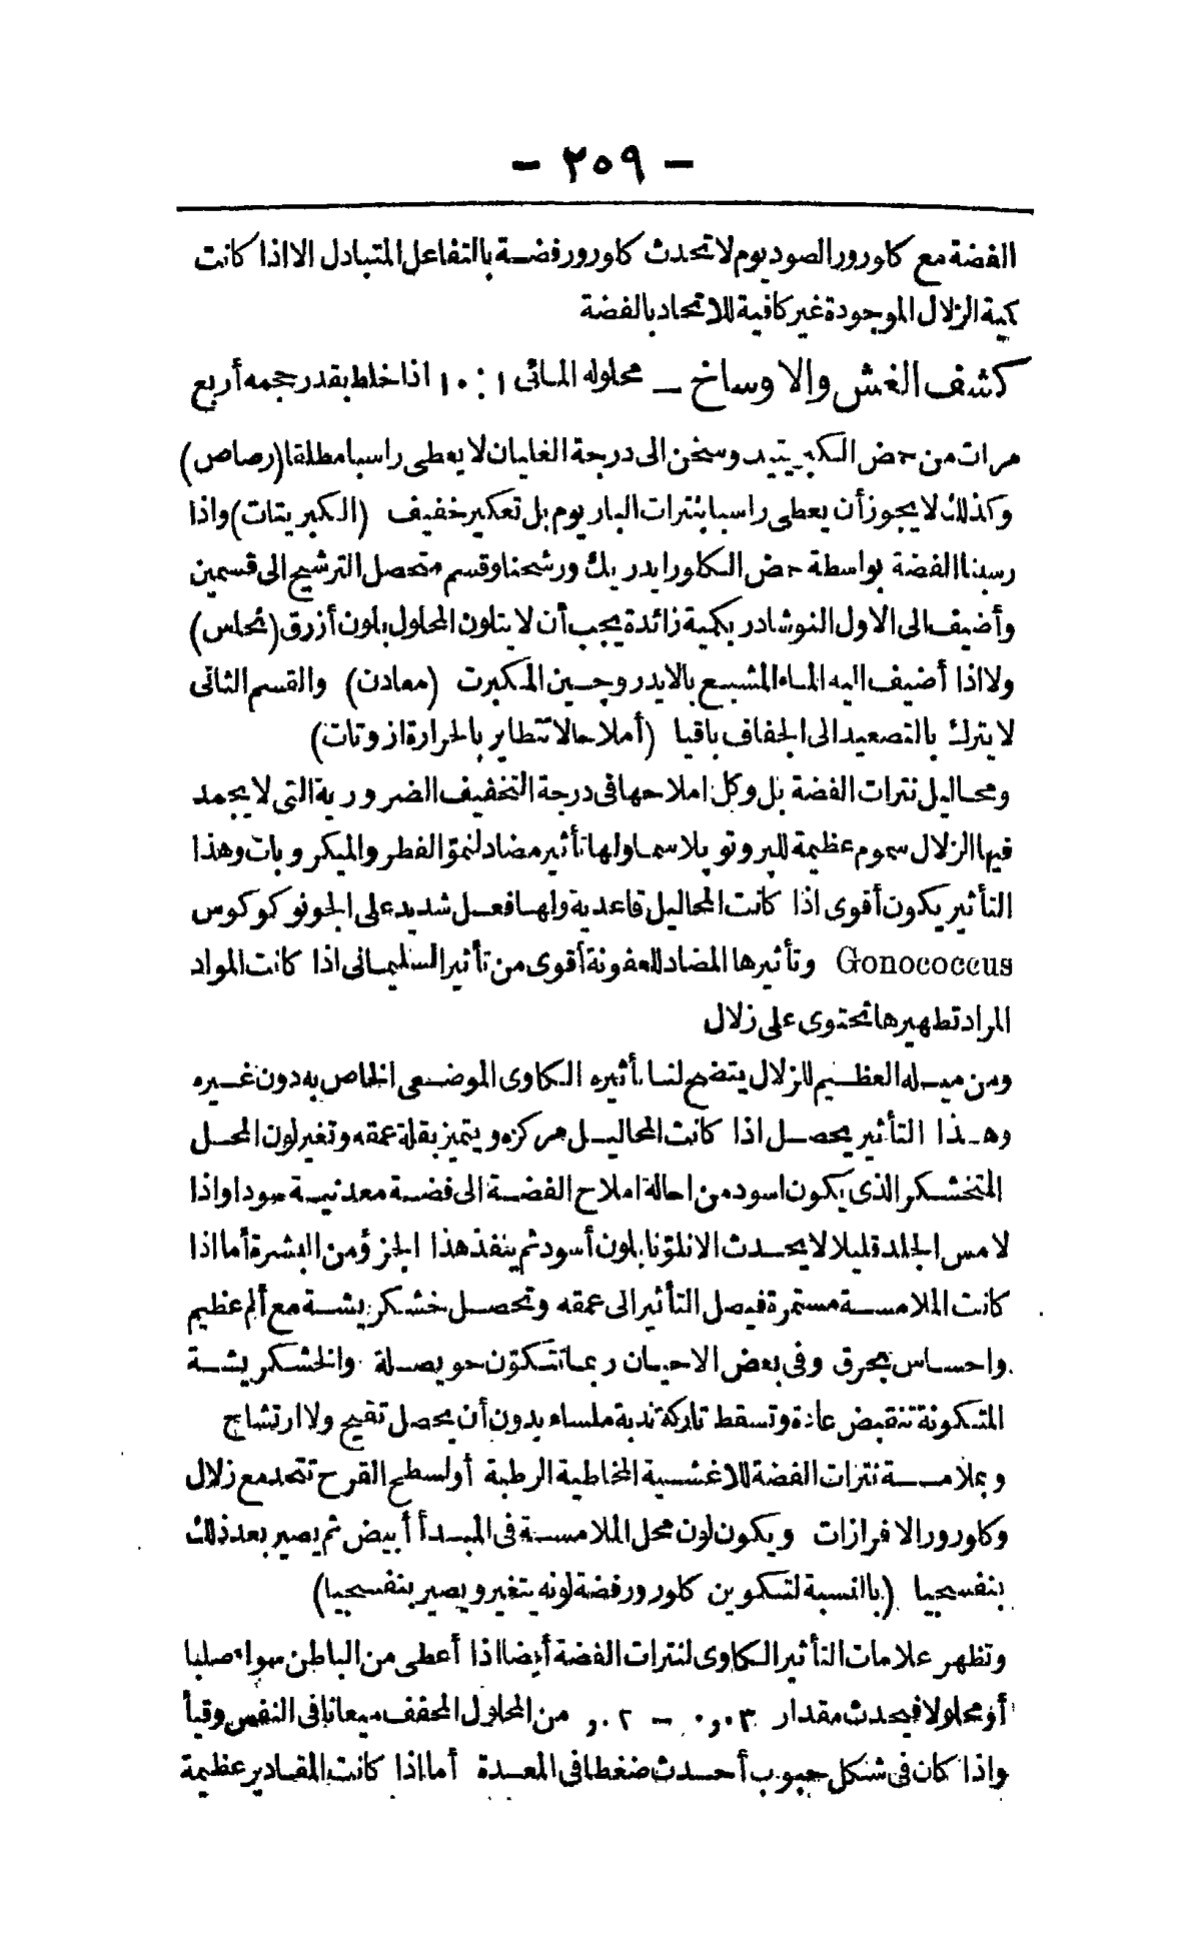 - ٢٥٩ -
الفضة مع كلورور الصوديوم لا تحدث كلورور فضة بالتفاعل المتبادل الا اذا كانت
كمية الزلال الموجودة غير كافية للاتحاد بالفضة
كشف الغش والاوساخ – محلوله المائى ١ : ١٠ اذا خلط بقدر حجمه أربع
مرات من حمض الكبريتيد وسخن الى درجة الغليان لا يعطى راسبا مطلقا (رصاص)
وكذلك لا يجوز أن يعطى راسبا بنترات الباريوم بل تعكير خفيف (الكبريتات) واذا
رسبنا الفضة بواسطة حمض الكلورايدريك ورشحنا وقسم متحصل الترشيح الى قسمين
وأضيف الى الاول النوشادر بكمية زائدة يجب أن لا يتلون المحلول بلون أزرق (نحاس)
ولا اذا أضيف اليه الماء المشبع بالايدروچين المكبرت (معادن) والقسم الثانى
لا يترك بالتصعيد الى الجفاف باقيا (أملاحا لا تتطاير بالحرارة ازوتات)
ومحاليل نترات الفضة بل وكل املاحها فى درجة التخفيف الضرورية التى لا يجمد
فيها الزلال سموم عظيمة للپروتوپلاسما ولها تأثير مضاد لنموّ الفطر والميكروبات وهذا
التأثير يكون أقوى اذا كانت المحاليل قاعدية ولها فعل شديد على الجونوكوكوس
Gonococcus وتأثيرها المضاد للعفونة أقوى من تأثير السليمانى اذا كانت المواد
المراد تطهيرها تحتوى على زلال
ومن ميله العظيم للزلال يتضح لنا تأثيره الكاوى الموضعى الخاص به دون غيره
وهذا التأثير يحصل اذا كانت المحاليل مركزه ويتميز بقلة عمقه وتغير لون المحل
المتخشكر الذى يكون اسود من احالة املاح الفضة الى فضة معدنية سودا واذا
لامس الجلد قليلا لا يحدث الا تلوّنا بلون أسود ثم ينفذ هذا الجزؤ من البشرة أما اذا
كانت الملامسة مستمرة فيصل التأثير الى عمقه وتحصل خشكريشة مع ألم عظيم
واحساس بحرق وفى بعض الاحيان ربما تتكوّن حويصلة والخشكريشة
المتكونة تنقبض عادة وتسقط تاركة ندبة ملساء بدون أن يحصل تقيح ولا ارتشاح
وبملامسة نترات الفضة للاغشية المخاطية الرطبة أو لسطح القرح تتحد مع زلال
وكلورور الافرازات ويكون لون محل الملامسة فى المبدأ أبيض ثم يصير بعد ذلك
بنفسجيا (بالنسبة لتكوين كلورور فضة لونه يتغير ويصير بنفسجيا)
وتظهر علامات التأثير الكاوى لنترات الفضة أيضا اذا أعطى من الباطن سواء صلبا
أو محلولا فيحدث مقدار ٠٫٠٣ – ٠٫٢ من المحلول المخفف ميعانا فى النفس وقيأ
واذا كان فى شكل حبوب أحدث ضغطا فى المعدة أما اذا كانت المقادير عظيمة